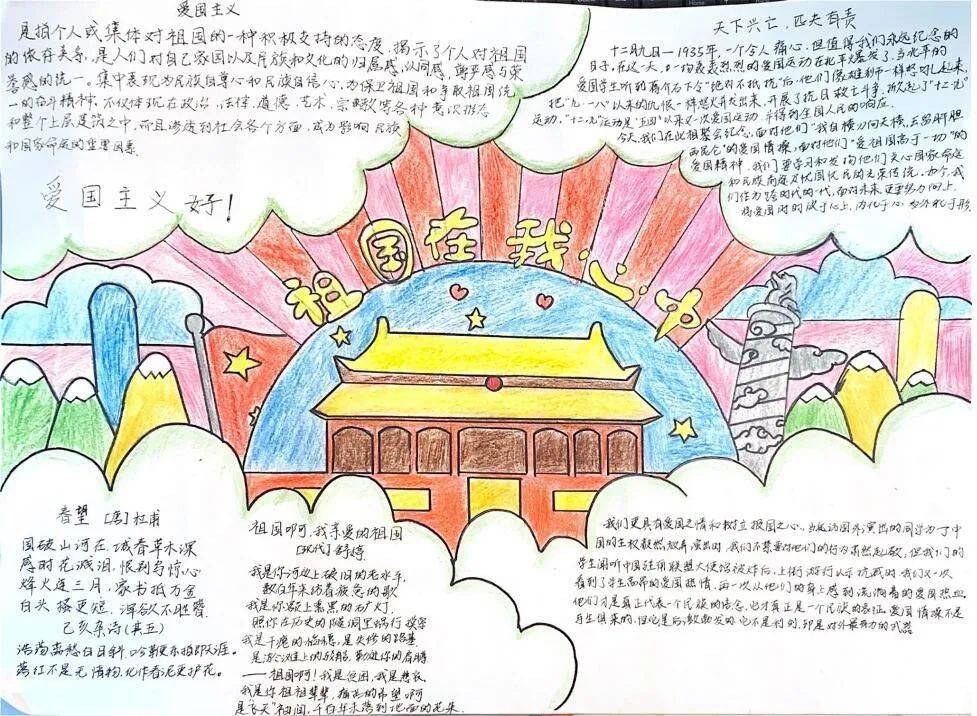 爱国主义
是指个人或集体对祖国的一种积极支持的态度，揭示了个人对祖国
的依存关系，是人们对自己家园以及民族和文化的归属感，认同感，尊严感与荣
誉感的统一。集中表现为民族自尊心和民族自信心，为保卫祖国和争取祖国统
一的奋斗精神，不仅体现在政治、法律、道德、艺术、宗教等各种意识形态
和整个上层建筑之中，而且渗透到社会各个方面，成为影响民族
和国家命运的重要因素。
爱国主义好！
天下兴亡，匹夫有责
十二月九日一1935年，一个令人痛心，但值得我们永远纪念的
日子，在这一天，一场轰轰烈烈的爱国运动在北平爆发了，当北平的
爱国学生听到蒋介石下令"绝对不抵抗"后，他们像雄狮一样怒吼起来，
把"九·一八"以来的仇恨一样怒火开发出来，开展了抗日救亡斗争，掀起了"十二·九"
运动，"十二·九"运动是"五四"以来又一次爱国运动，并得到全国人民的响应。
今天，我们在此相聚会纪念，面对他们"我自横刀向天横，去留肝胆
两昆仑"的爱国情操，面对他们"爱祖国高于一切"的
爱国精神，我们要学习和发扬他们关心国家命运
和民族前途及忧国忧民的光荣传统，如今，我
们作为跨时代的一代，面对未来更要努力向上，
将爱国时的放于心上，内化于心，外化于形
祖国在我心中
春望 [唐]杜甫
国破山河在，城春草木深
感时花溅泪，恨别鸟惊心
烽火连三月，家书抵万金
白头搔更短，浑欲不胜簪
己亥杂诗（其五）
浩荡离愁白日斜，吟鞭东指即天涯。
落红不是无情物，化作春泥更护花。
祖国啊，我亲爱的祖国
[现代]舒婷
我是你河边上破旧的老水车，
数百年来纺着疲惫的歌
我是你额上熏黑的矿灯，
照你在历史的隧洞里蜗行摸索
我是干瘪的稻穗，是失修的路基
是淤滩上的驳船，
——祖国啊！我是贫困，我是悲哀
我是你祖祖辈辈，痛苦的希望啊
是"飞天"袖间，千百年未落到地面的花朵
我们更具有爱国之情和树立报国之心。当远访国外演出的同学为了中
国的主权毅然放弃演出时，我们不禁要对他们的行为肃然起敬，但我们的
学生闻听中国驻南联盟大使馆被炸后，上街游行以示抗议时，我们又一次
看到了学生高昂的爱国热情，每一次从他们的身上感到流淌着的爱国热血，
他们才是真正代表一个民族的信念，也才真正是一个民族的象征，爱国情操不是
与生俱来的，但它是后激励发的，它不是利剑，却是对外最有力的武器